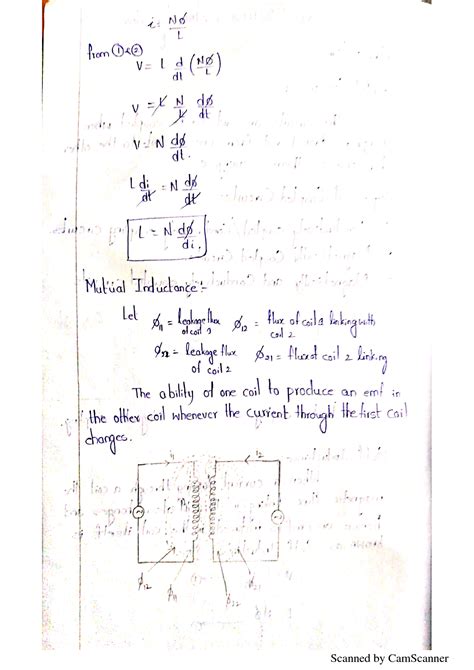 i = Nφ/L
from ① & ②
V = L d/dt (Nφ/L)
V = L N/L dφ/dt
V = N dφ/dt.
L di/dt = N dφ/dt
L = N dφ/di.
Mutual Inductance :-
Let φ11 = leakage flux of coil φ12 = flux of coil linking with coil 2
φ22 = leakage flux of coil 2 φ21 = flux of coil 2 linking
The ability of one coil to produce an emf in
the other coil whenever the current through the first coil
changes.
i1 i2
φ12 φ11 φ22
Scanned by CamScanner